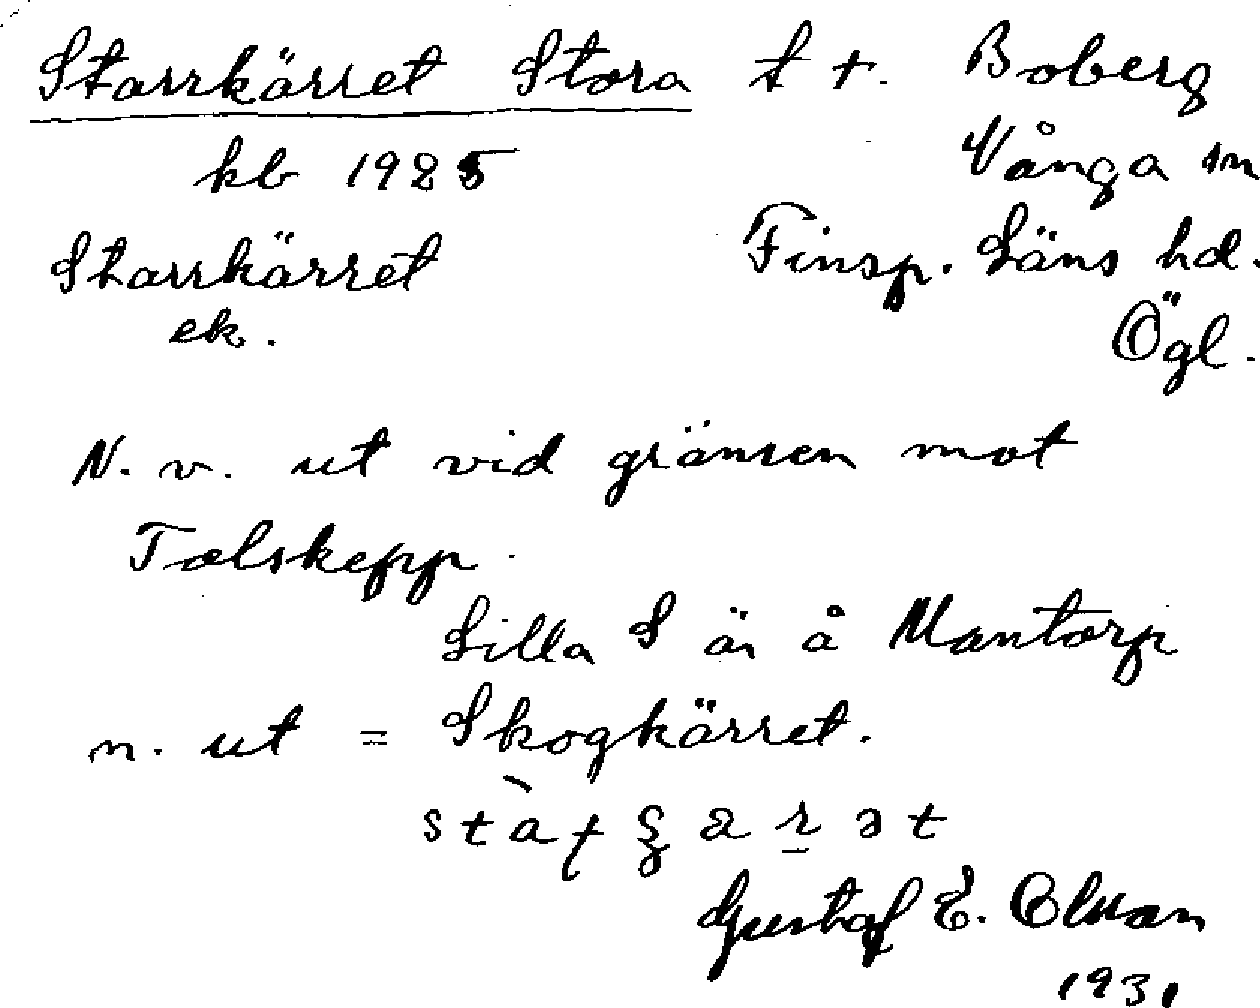 Starrkärret Stora t t. Boberg
kb 1925 Vånga sn
Starrkärret Finsp. Läns hd.
ek. Ögl.
N. v. ut vid gränsen mot
Tolskepp.
Lilla S är å Mantorp
n. ut = Skogkärret.
Gustaf E. Olsson
1931